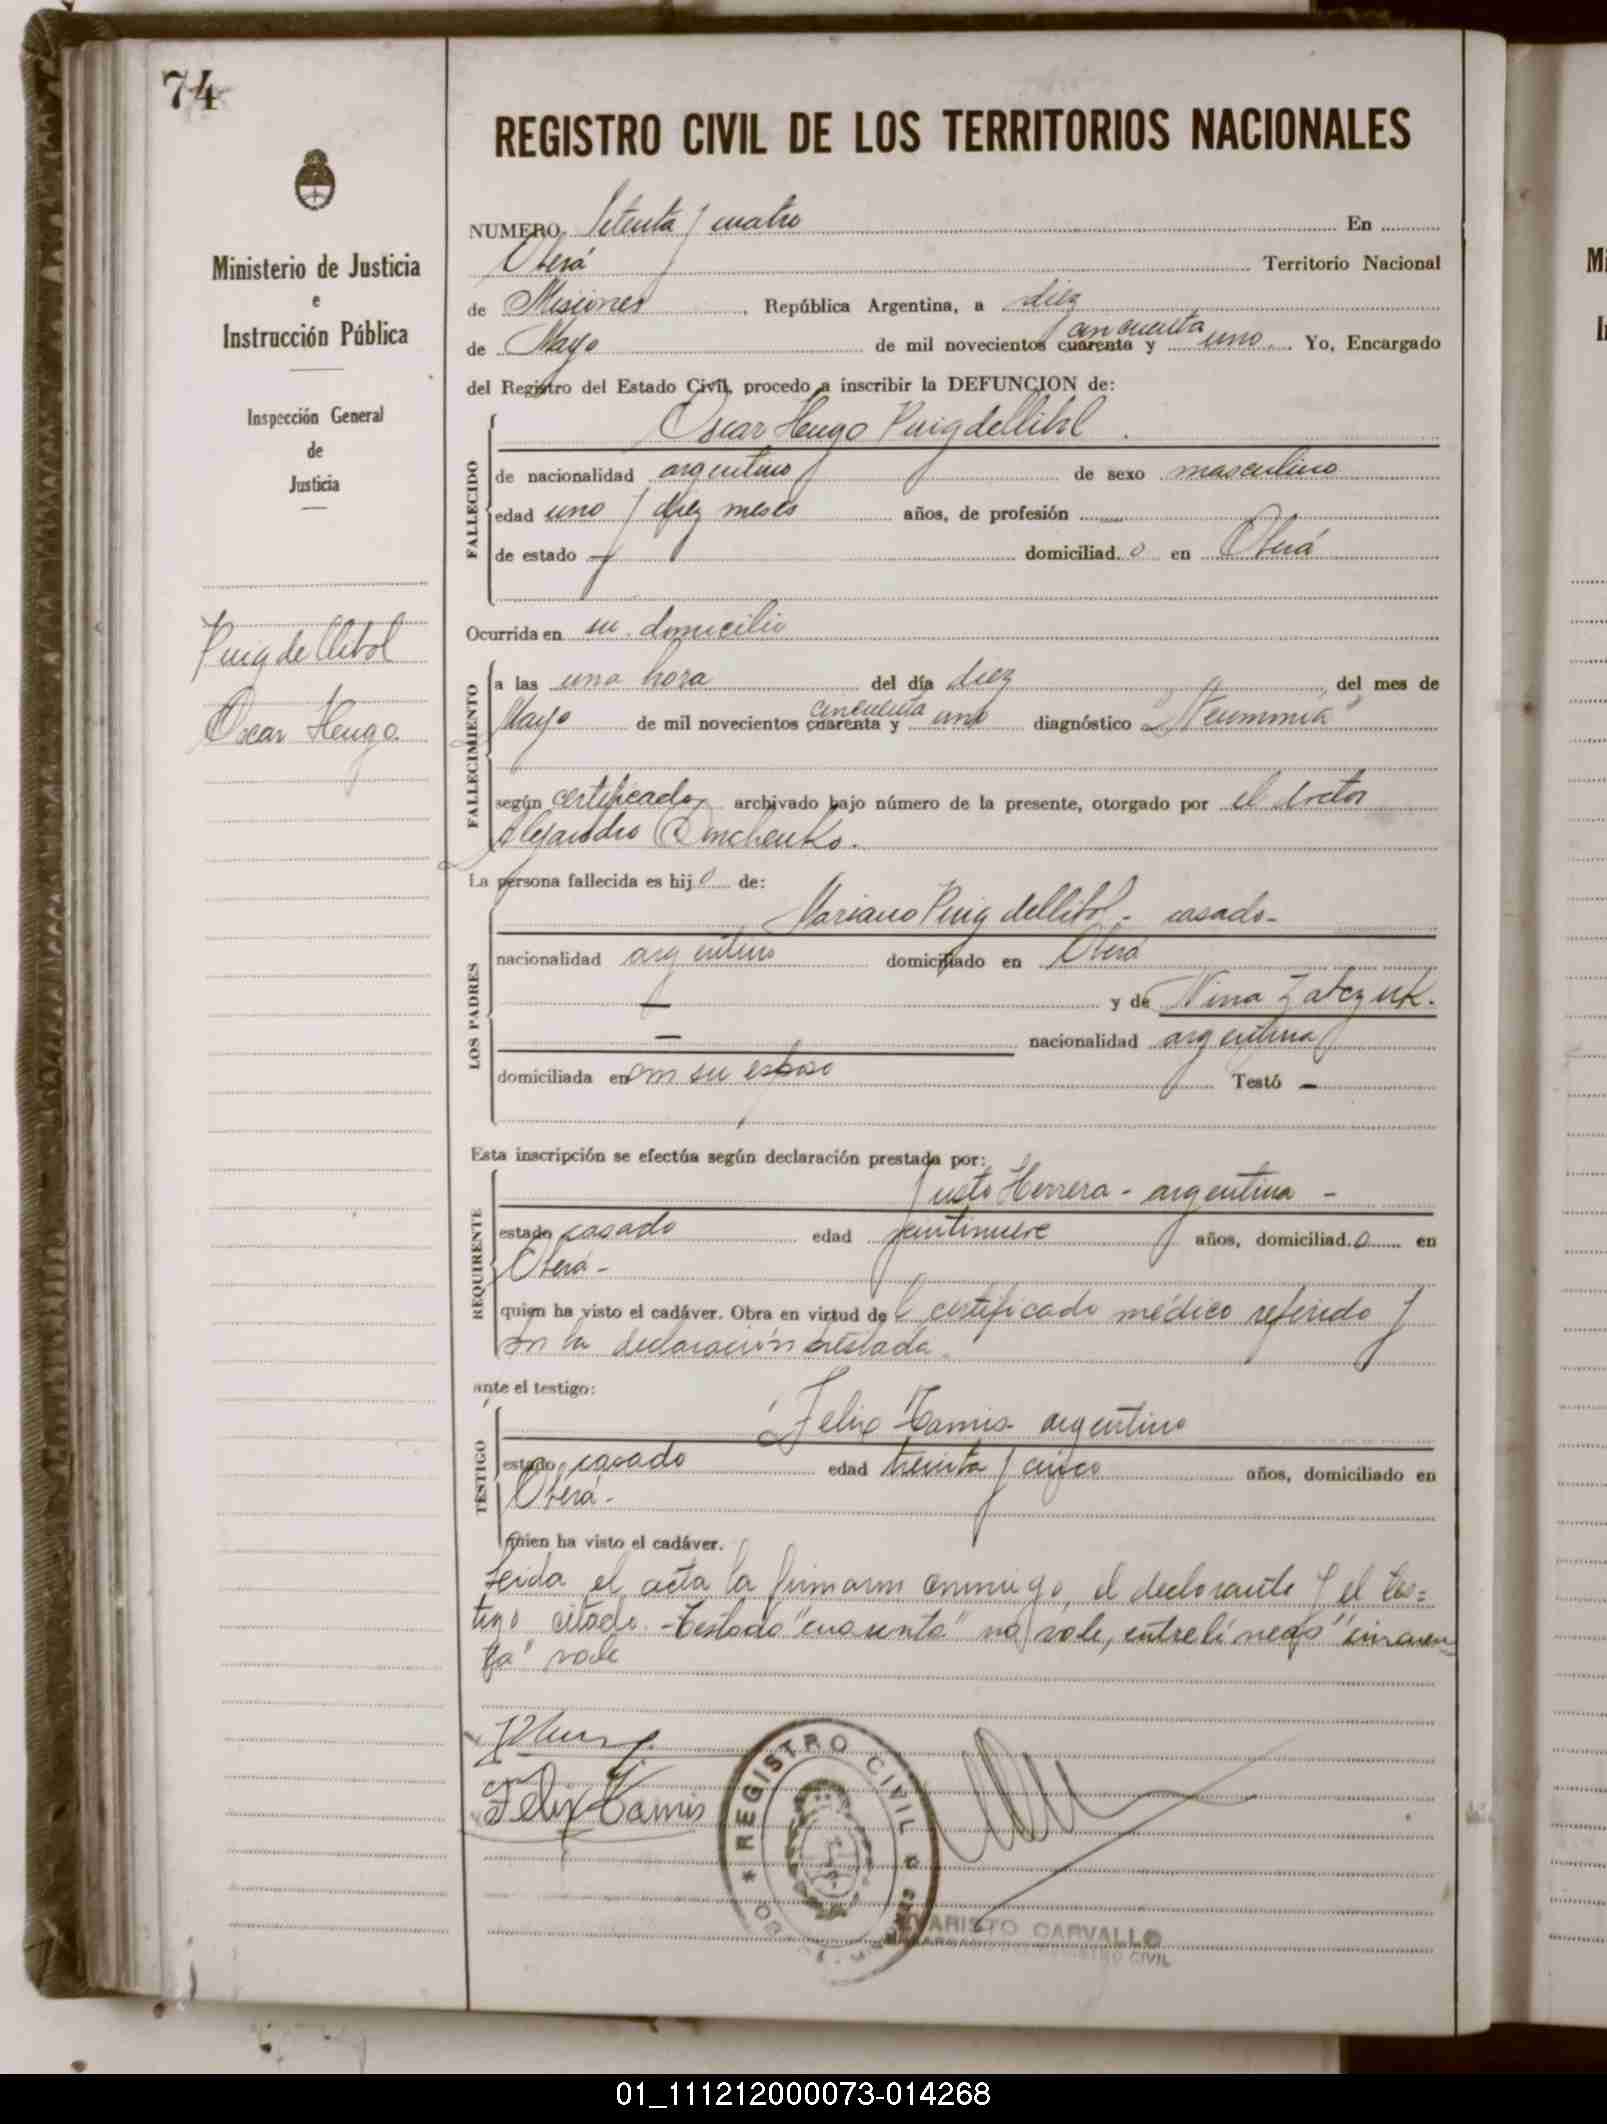 74
REGISTRO CIVIL DE LOS TERRITORIOS NACIONALES
Ministerio de Justicia
e
Instrucción Pública
Inspección General
de
Justicia
Puigdellibol
Oscar Hugo
NUMERO Setenta y cuatro En
Oberá Territorio Nacional
de Misiones, República Argentina, a diez
cincuenta
de Mayo de mil novecientos cuarenta y uno. Yo, Encargado
del Registro del Estado Civil, procedo a inscribir la DEFUNCION de:
Oscar Hugo Puigdellibol
FALLECIDO
de nacionalidad argentino de sexo masculino
edad uno y diez meses años, de profesión
de estado — domiciliad o en Oberá
Ocurrida en su domicilio
FALLECIMIENTO
a las una hora del día diez del mes de
cincuenta
Mayo de mil novecientos cuarenta y uno diagnóstico "Neumonía"
según certificado archivado bajo número de la presente, otorgado por el doctor
Alejandro
La persona fallecida es hij o de:
LOS PADRES
Mariano Puigdellibol - casado-
nacionalidad argentino domiciliado en Oberá
— y de Nina Zatczuk.
— nacionalidad argentina
domiciliada en con su esposo Testó —
Esta inscripción se efectúa según declaración prestada por:
REQUIRENTE
Justo Herrera - argentina -
estado casado edad años, domiciliad o en
Oberá -
quien ha visto el cadáver. Obra en virtud de l certificado médico referido y
en la declaración prestada
ante el testigo:
TESTIGO
Felix Tamis argentino
estado casado edad treinta y cinco años, domiciliado en
Oberá -
quien ha visto el cadáver.
Leida el acta la firmaron conmigo, el declarante y el tes=
tigo citado. -Testado "cuarenta" no vale, entrelíneas "cincuen
ta" vale
Felix Tamis
REGISTRO CIVIL
EVARISTO CARVALLO
ENCARGADO DEL REGISTRO CIVIL
01_111212000073-014268